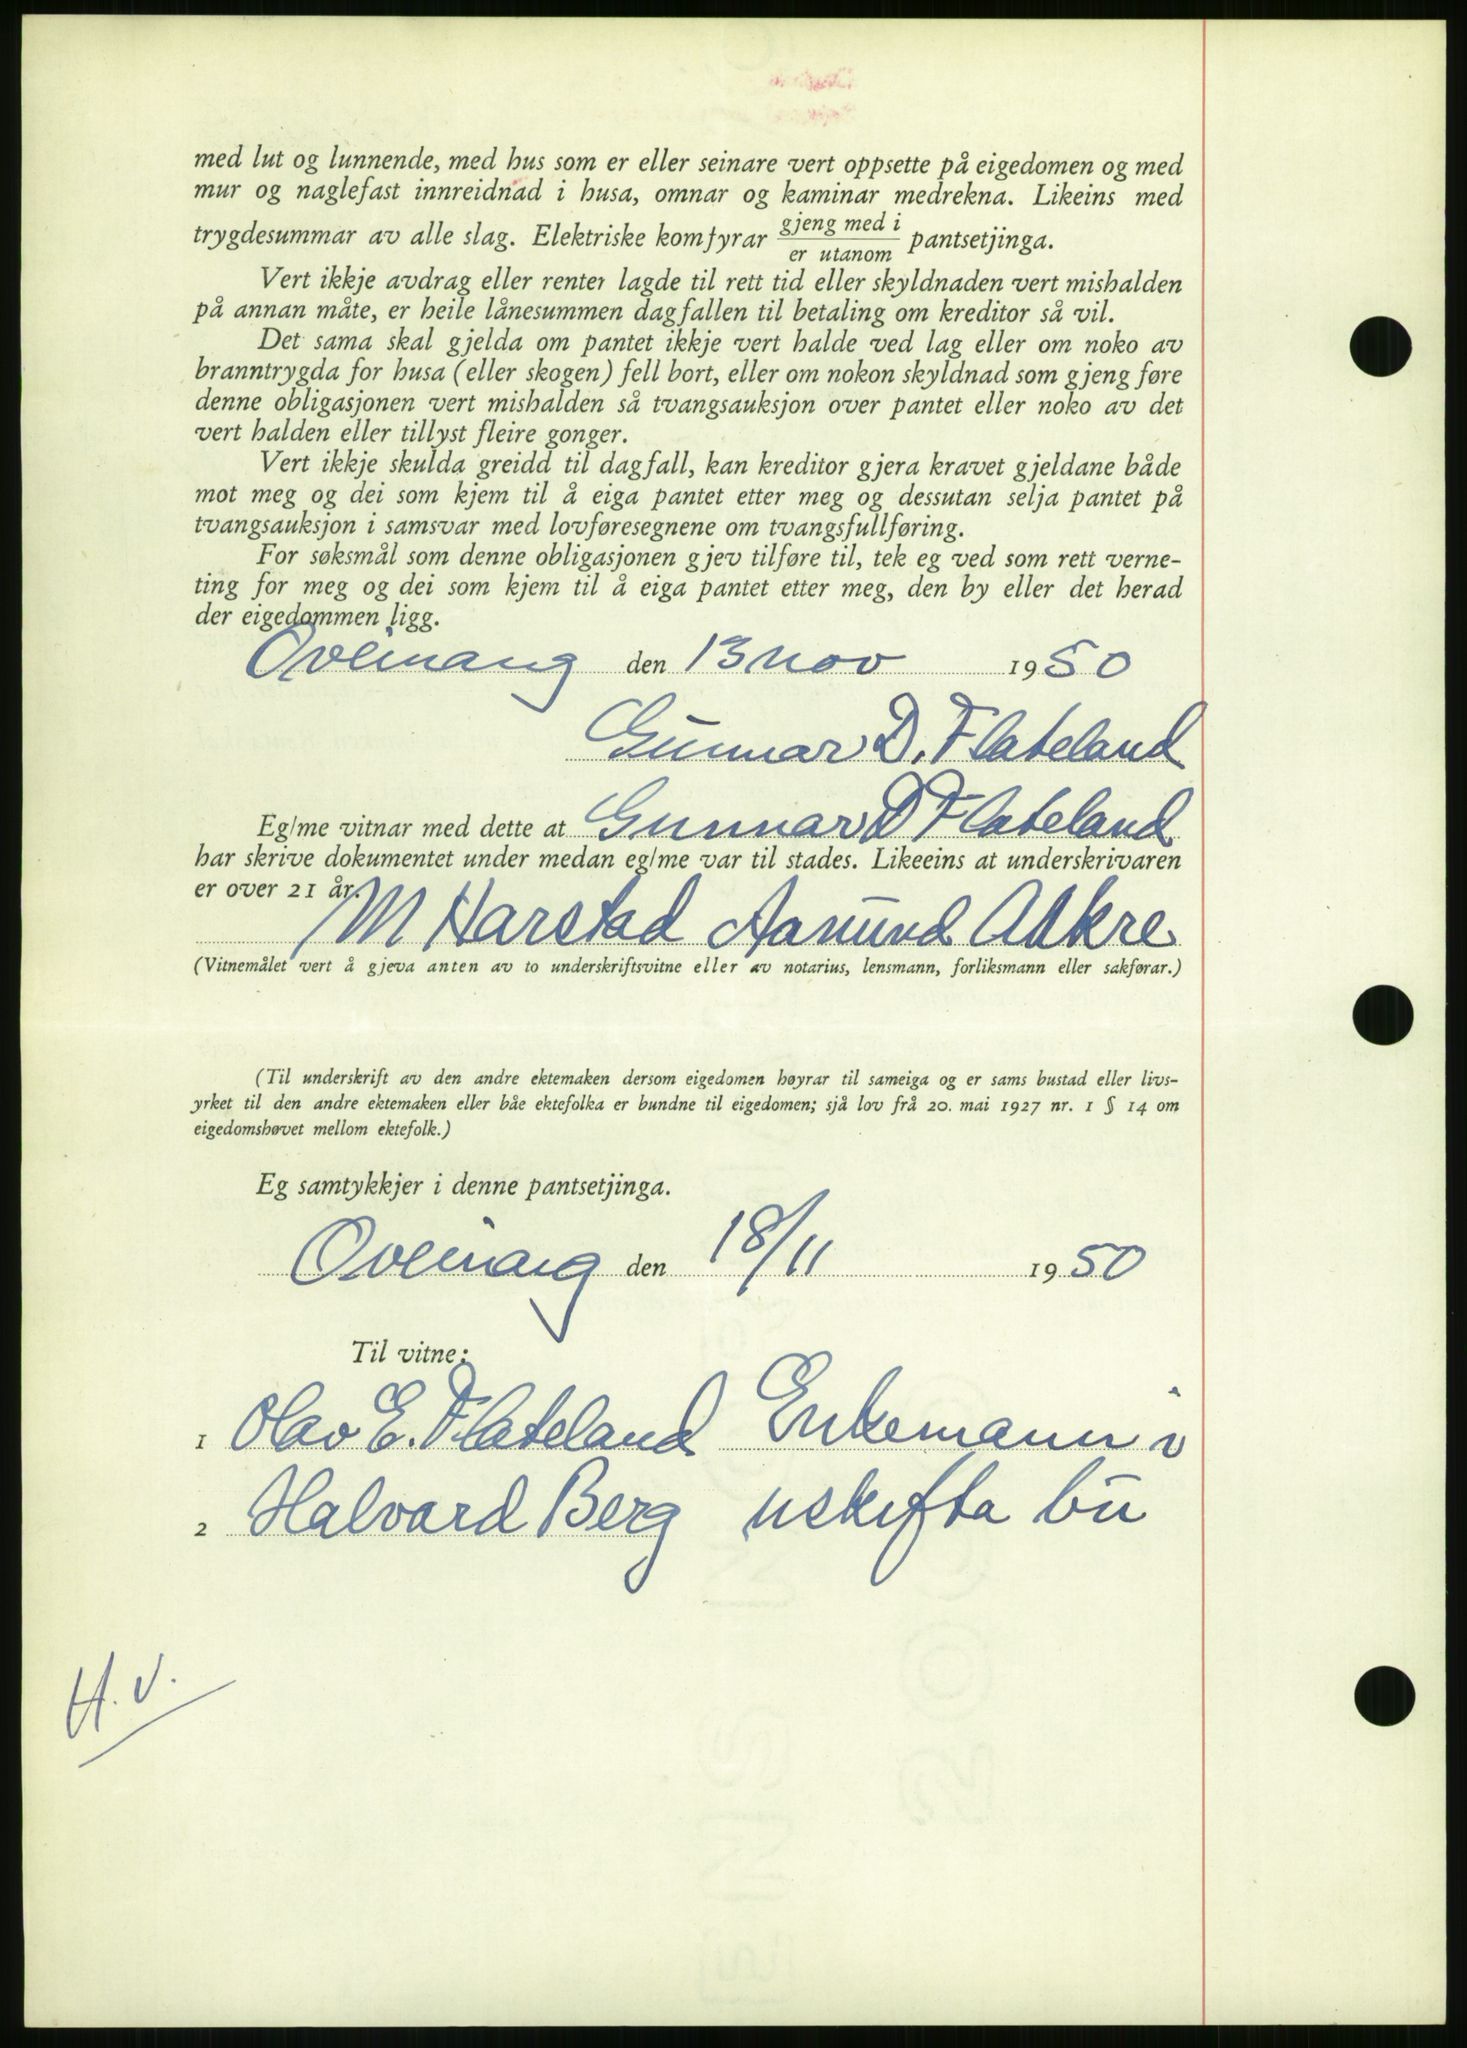 med lut og lunnende, med hus som er eller seinare vert oppsette på eigedomen og med
mur og naglefast innreidnad i husa, omnar og kaminar medrekna. Likeins med
trygdesummar av alle slag. Elektriske komfyrar gjeng med i / er utanom pantsetjinga.
Vert ikkje avdrag eller renter lagde til rett tid eller skyldnaden vert mishalden
på annan måte, er heile lånesummen dagfallen til betaling om kreditor så vil.
Det sama skal gjelda om pantet ikkje vert halde ved lag eller om noko av
branntrygda for husa (eller skogen) fell bort, eller om nokon skyldnad som gjeng føre
denne obligasjonen vert mishalden så tvangsauksjon over pantet eller noko av det
vert halden eller tillyst fleire gonger.
Vert ikkje skulda greidd til dagfall, kan kreditor gjera kravet gjeldane både
mot meg og dei som kjem til å eiga pantet etter meg og dessutan selja pantet på
tvangsauksjon i samsvar med lovføresegnene om tvangsfullføring.
For søksmål som denne obligasjonen gjev tilføre til, tek eg ved som rett verne-
ting for meg og dei som kjem til å eiga pantet etter meg, den by eller det herad
der eigedommen ligg.
Oveinang den 13 nov 1950
Gunnar D. Flateland
Eg/me vitnar med dette at Gunnar D Flateland
har skrive dokumentet under medan eg/me var til stades. Likeeins at underskrivaren
er over 21 år.
M Harstad Aasmund Aakre
(Vitnemålet vert å gjeva anten av to underskriftsvitne eller av notarius, lensmann, forliksmann eller sakførar.)
(Til underskrift av den andre ektemaken dersom eigedomen høyrar til sameiga og er sams bustad eller livs-
yrket til den andre ektemaken eller båe ektefolka er bundne til eigedomen; sjå lov frå 20. mai 1927 nr. 1 § 14 om
eigedomshøvet mellom ektefolk.)
Eg samtykkjer i denne pantsetjinga.
Oveinang den 18/11 1950
Til vitne:
1 Olav E. Flateland Enkemann i
2 Halvard Berg uskifta bu
H.V.